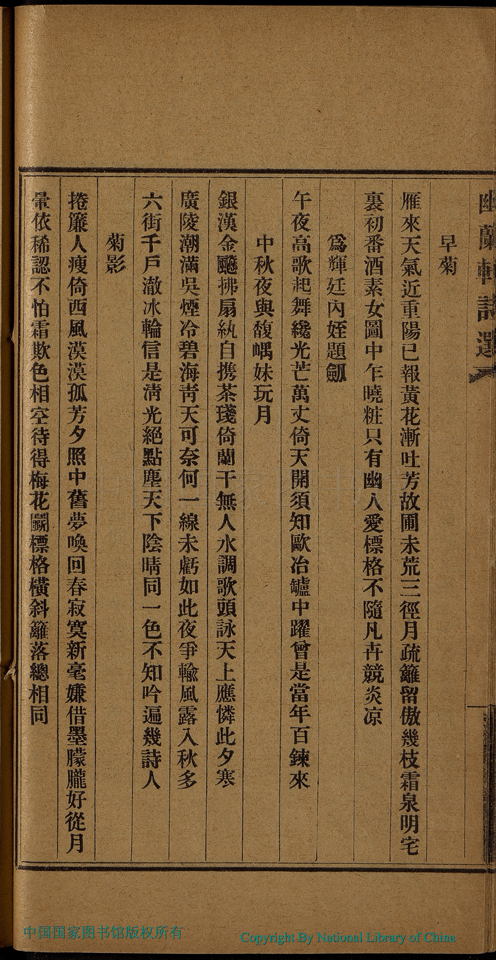 幽蘭軒詩選
早菊
雁來天氣近重陽已報黃花漸吐芳故圃未荒三徑月疏籬留傲幾枝霜泉明宅
裏初番酒素女圖中乍曉粧只有幽人愛標格不隨凡卉競炎凉
爲輝廷內姪題劒
午夜高歌起舞纔光芒萬丈倚天開須知歐冶罏中躍曾是當年百鍊來
中秋夜與馥嵎妹玩月
銀漢金飈拂扇紈自携茶琖倚闌干無人水調歌頭詠天上應憐此夕寒
廣陵潮滿吳煙冷碧海靑天可奈何一線未虧如此夜爭輸風露入秋多
六街千戶澈冰輪信是淸光絕點塵天下陰晴同一色不知吟遍幾詩人
菊影
捲簾人瘦倚西風漠漠孤芳夕照中舊夢喚回春寂寞新毫嫌借墨朦朧好從月
暈依稀認不怕霜欺色相空待得梅花鬭標格橫斜籬落總相同
中国国家图书馆版权所有
Copyright By National Library of China